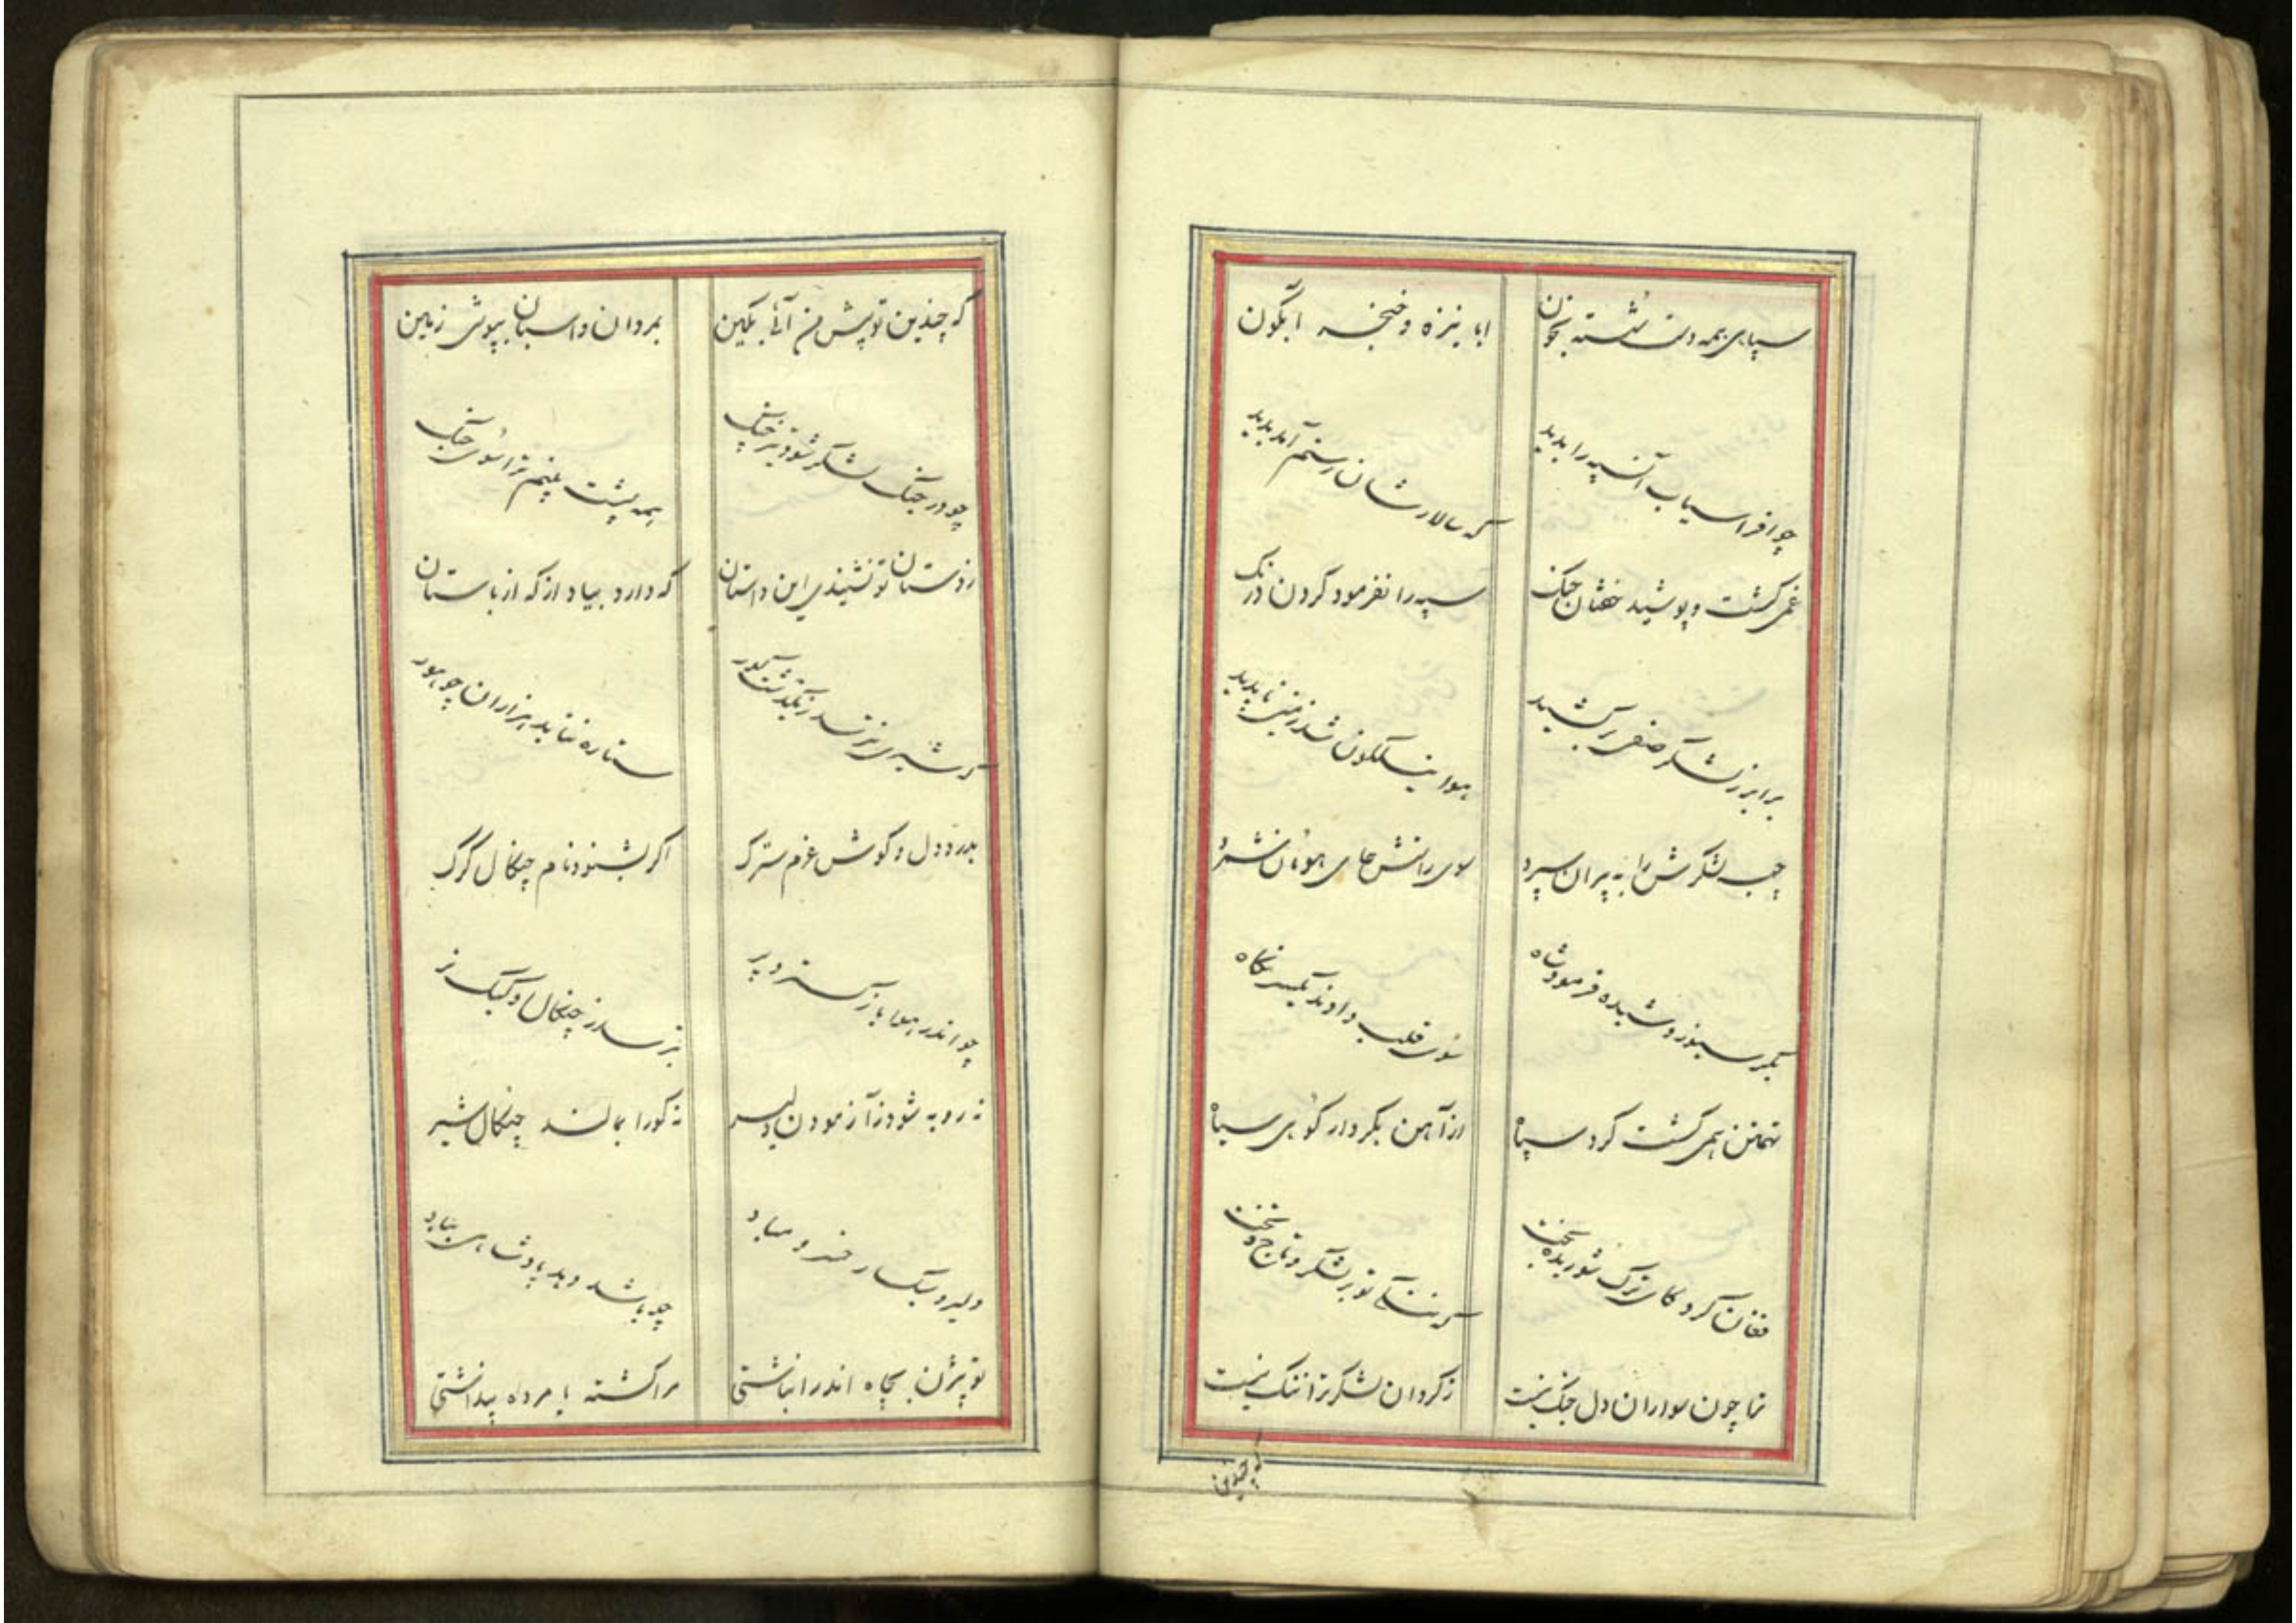 سپاهی همه دست شسته بخون ابا نیزه و خنجر آبگون
چو افراسیاب آن سپه را بدید که سالارشان رستم آمد پدید
غمی گشت و پوشید خفتان جنگ سپه را نفرمود کردن درنگ
برابر ز لشکر صفی برکشید هوا نیلگون شد زمین ناپدید
چپ لشکرش را به پیران سپرد سوی راستش جای هومان شمرد
بگرسیوز و شیده فرمود شاه سوی قلب دادند یکسر نگاه
تهمتن همی گشت گرد سپاه از آهن بکردار کوهی سیاه
فغان کرد کای ترک شوریده بخت که ننگی تو بر لشکر و تاج و تخت
ترا چون سواران دل جنگ نیست ز گردان لشکر ترا ننگ نیست
که چندین
که چندین تو پیش من آئی بکین بمردان و اسبان بپوشی زمین
چو در جنگ لشکر شود تیز چنگ همه پشت بینم ترا سوی جنگ
ز دستان تو نشنیدی این داستان که دارد بیاد از که از باستان
که شیری نترسد ز یکدشت گور ستاره نتابد هزاران چو هور
بدرد دل و گوش غرم سترگ اگر بشنود نام چنگال گرگ
چو اندر هوا باز گسترد پر بترسد ز چنگال او کبک نر
نه روبه شود ز آزمودن دلیر نه گورا بمالند چنگال شیر
دلیر و سبکسار خسرو مباد چو باشد دهد پادشاهی بباد
تو بیژن بچاه اندر انباشتی مرا کشته یا مرده پنداشتی